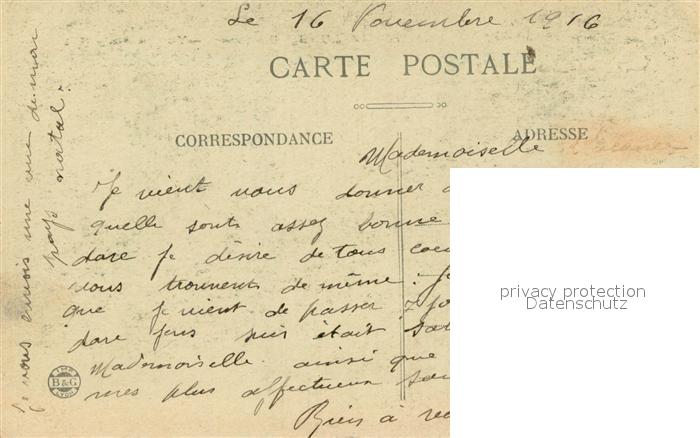 Le 16 Novembre 1916
CARTE POSTALE
CORRESPONDANCE
ADRESSE
Mademoiselle
Je vient vous donner
quelle sont assez bonne
dare je désire de tous
vous trouvent de même.
que je vient de passer 7
dare était
Mademoiselle ainsi que
mes plus affectueux
Bien à
Je vous envoie une vue de mon
pays natal.
IMP.
B&G
LYON
privacy protection
Datenschutz